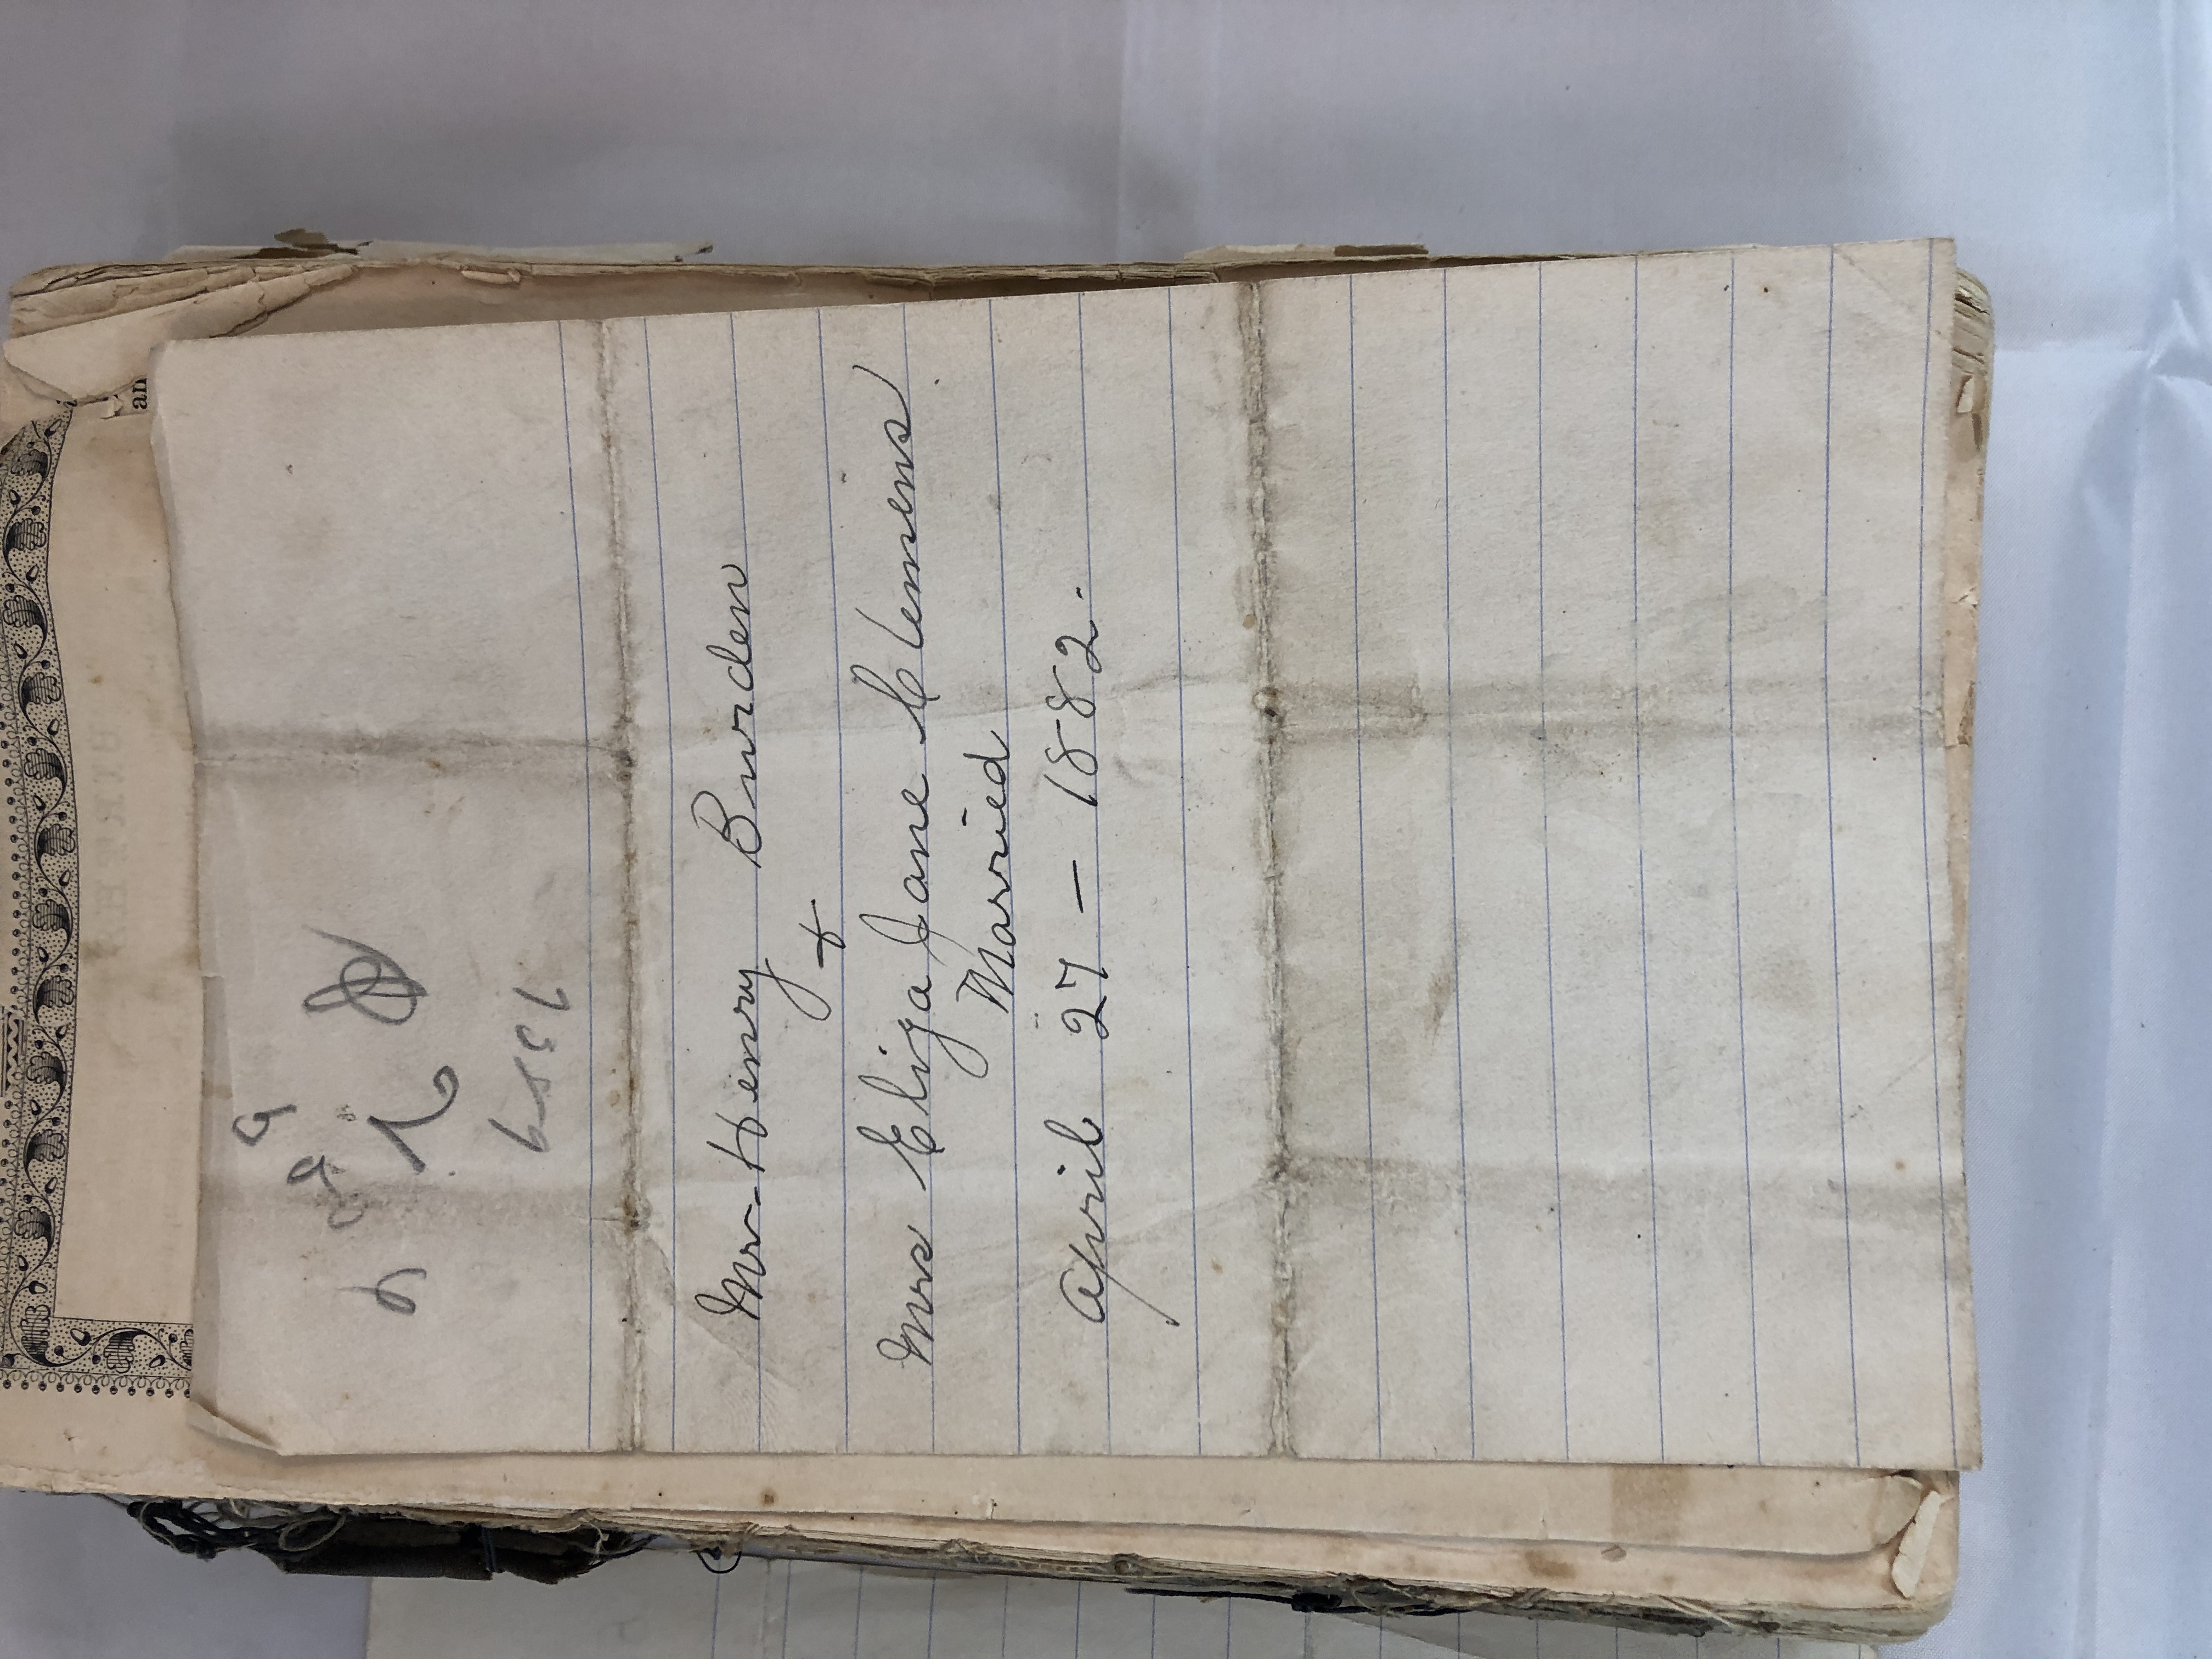 Mr. Henry Burden
+
Mrs Eliza Jane Clemens
Married
April 27 - 1882.
an